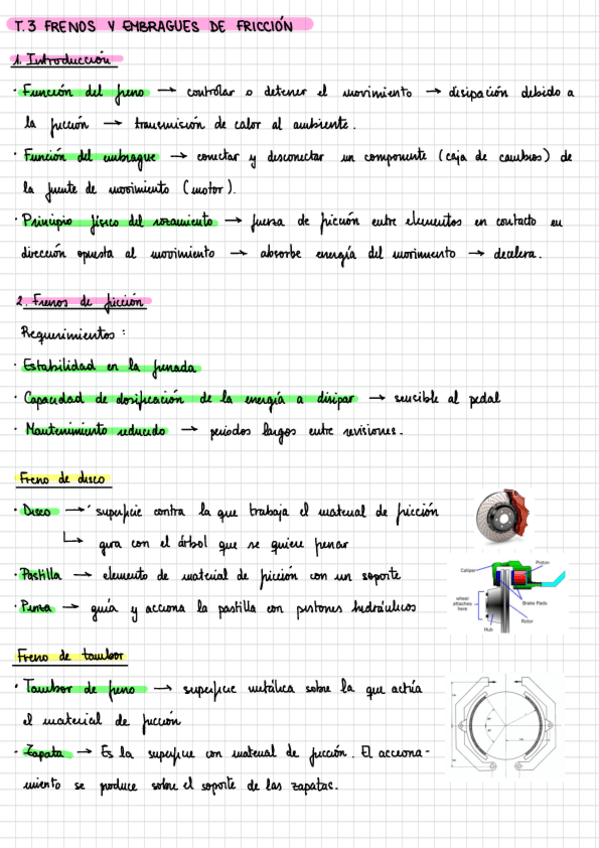 T.3 FRENOS Y EMBRAGUES DE FRICCIÓN
1. Introducción
· Función del freno → controlar o detener el movimiento → disipación debido a
la fricción → transmisión de calor al ambiente.
· Función del embrague → conectar y desconectar un componente (caja de cambios) de
la fuente de movimiento (motor).
· Principio físico del rozamiento → fuerza de fricción entre elementos en contacto en
dirección opuesta al movimiento → absorbe energía del movimiento → decelera.
2. Frenos de fricción
Requerimientos:
· Estabilidad en la frenada
· Capacidad de dosificación de la energía a disipar → sencible al pedal
· Mantenimiento reducido → periodos largos entre revisiones.
Freno de disco
· Disco → superficie contra la que trabaja el material de fricción
↳ gira con el árbol que se quiere frenar
· Pastilla → elemento de material de fricción con un soporte
· Pinza → guía y acciona la pastilla con pistones hidráulicos
Caliper
Piston
wheel
attaches
here
Brake Pads
Rotor
Hub
Freno de tambor
· Tambor de freno → superficie metálica sobre la que actúa
el material de fricción
· Zapata → Es la superficie con material de fricción. El acciona-
miento se produce sobre el soporte de las zapatas.